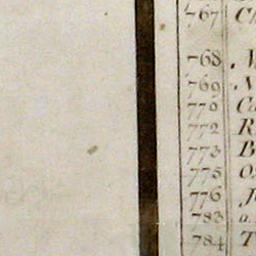 767 Ch
768
769
770 Ca
772 R
773 B
775 O
776 J
783 a
784 T